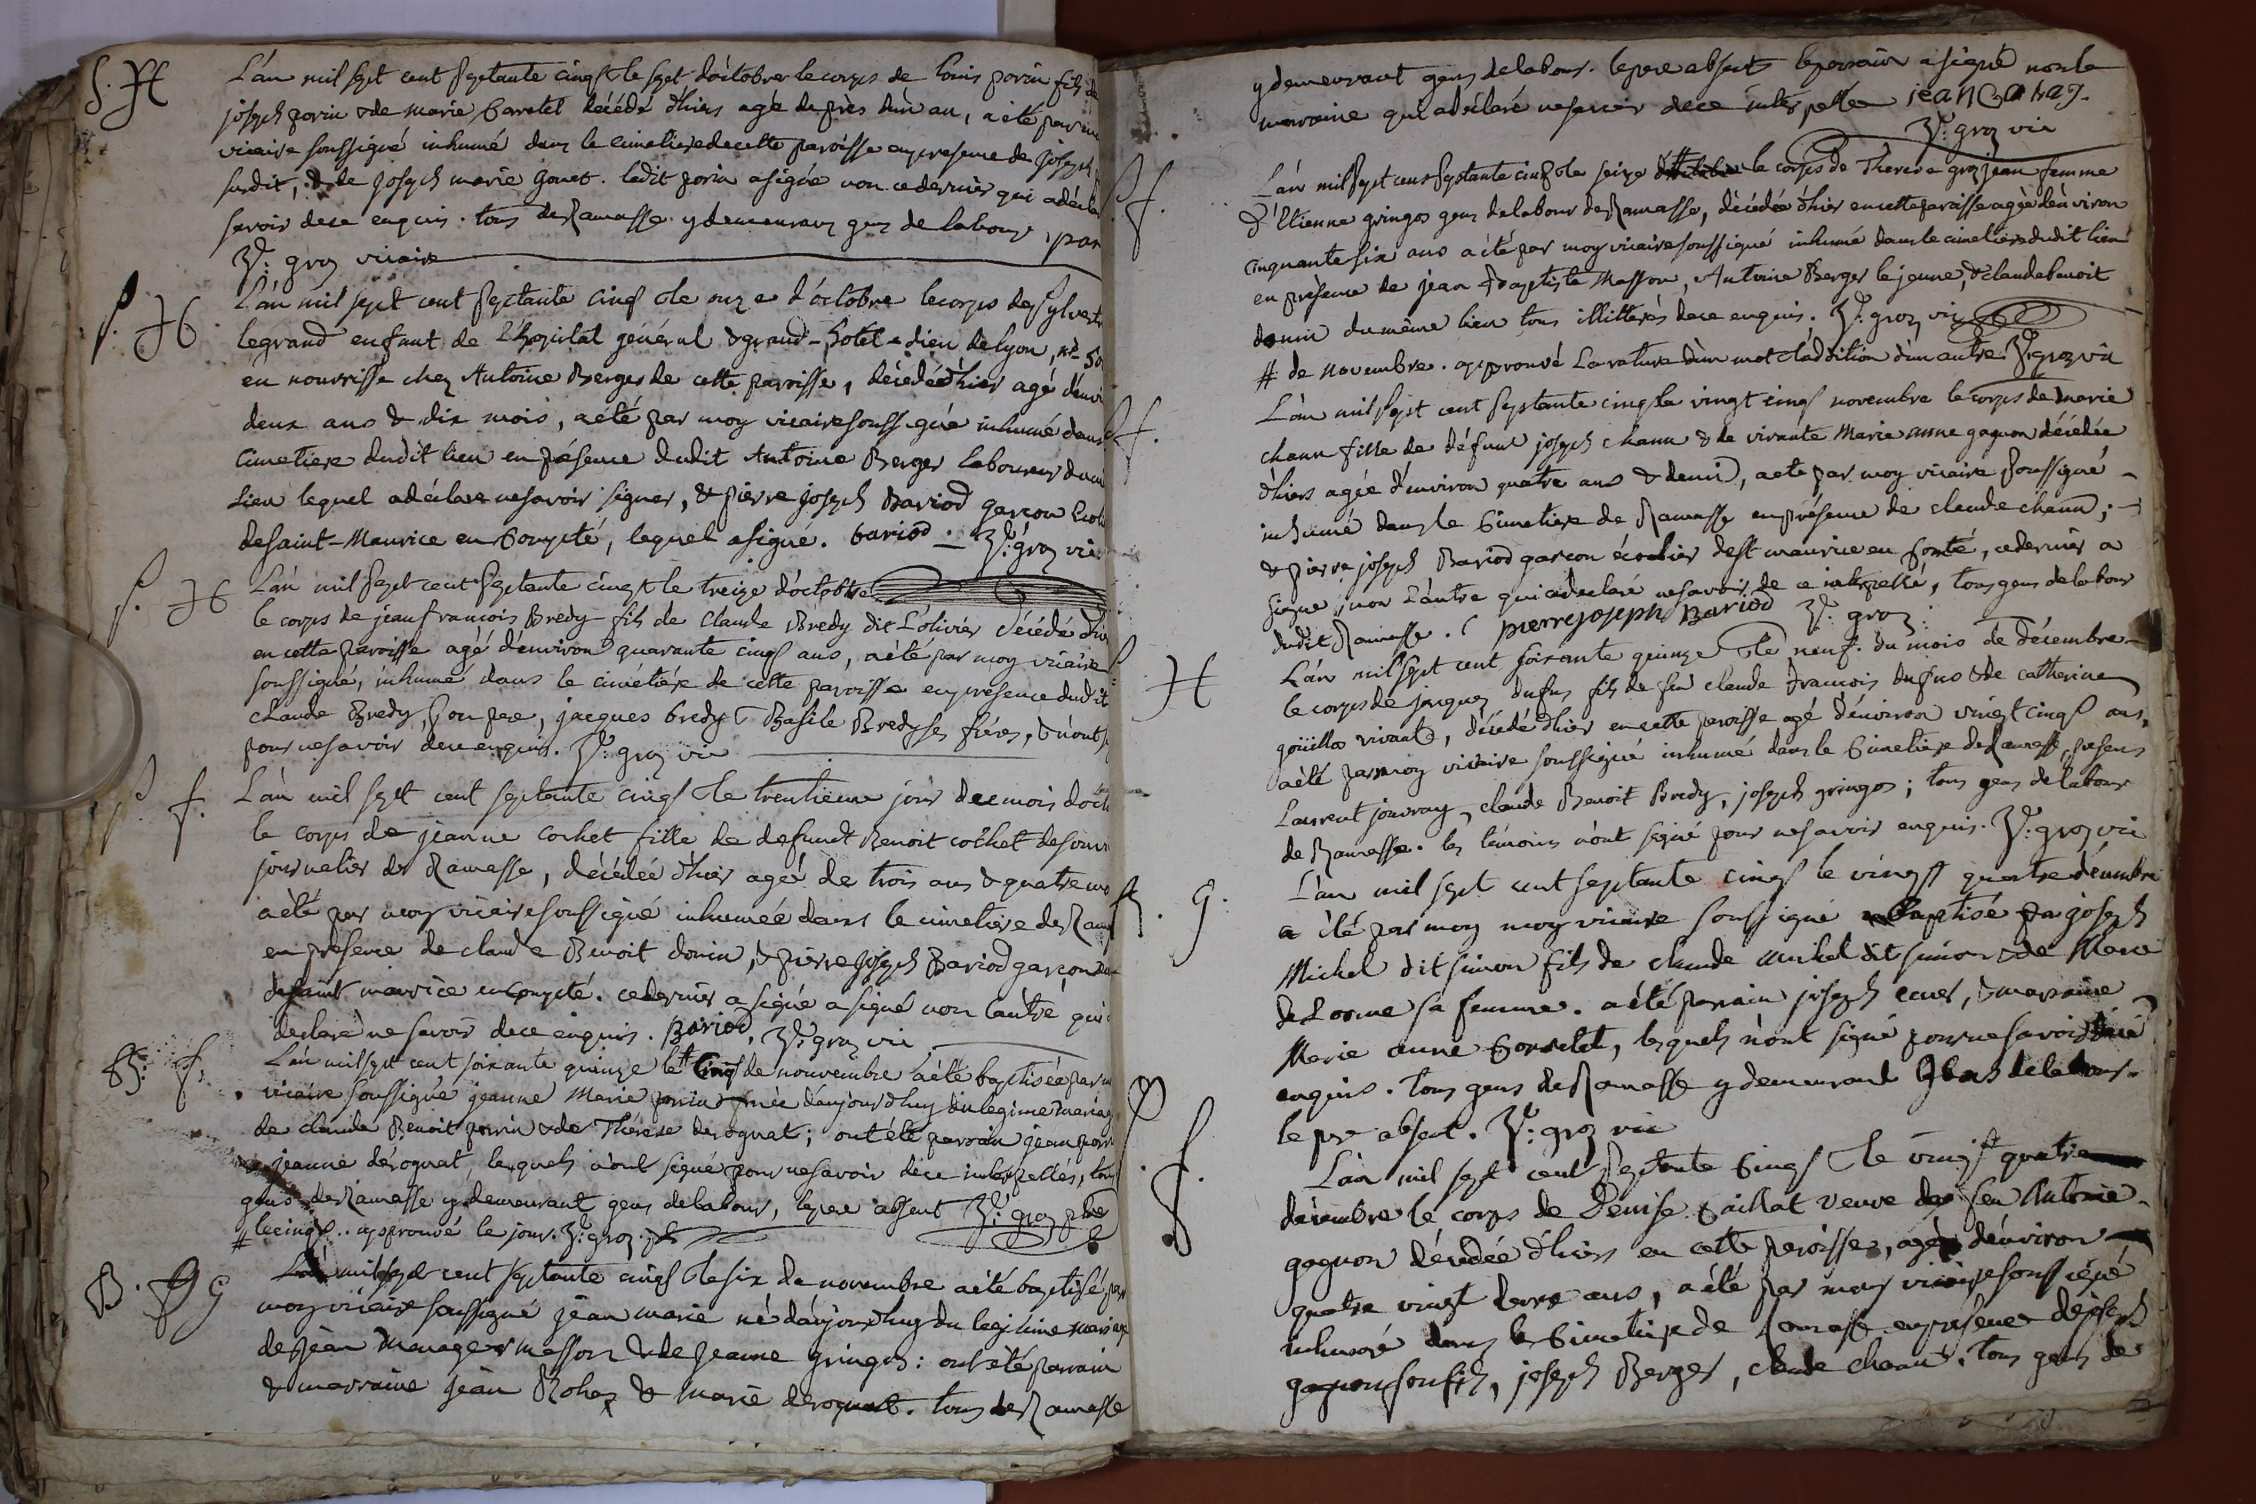 S. H
L'an mil sept cent septante cinq & le sept d'octobre le corps de louis porin fils de
joseph porin & de marie Carretel décédé d'hier agé de pres d'un an, a été par
vicaire soussigné inhumé dans le cimetiere de cette paroisse en presence de joseph
susdit, & de joseph marie gouet. ledit porin a signé non ce dernier qui a déclaré
savoir de ce enquis. tous de Ramasse y demeurans gens de labour, porin
gros vicaire
S. H
L'an mil sept cent septante cinq & le onze d'octobre le corps de Sylvestre
legrand enfant de l'hopital général & grand-hotel-dieu de lyon,
en nourrisse chez Antoine Berger de cette paroisse, décédé d'hier agé d'envi
deux ans & dix mois, a été par moy vicaire soussigné inhumé dans
Cimetiere dudit lieu en présence dudit Antoine Berger laboureur du
lieu lequel a déclaré ne savoir signer, & pierre joseph Bariod garçon Ecol
de saint-Maurice en Compté, lequel a signé. bariod. gros vic
S. H
L'an mil sept cent septante cinq & le treize d'octobre
le corps de jean francois Bredy fils de Claude Bredy dit L'olivier décédé d'hier
en cette paroisse agé d'environ quarante cinq ans, a été par moy vicaire
soussigné, inhumé dans le cimetiére de cette paroisse en presence dudit
Claude Bredy, son pere, jacques bredy & Basile Bredy ses fréres, & n'ont
pour ne savoir de ce enquis. gros vic
S. f.
L'an mil sept cent septante cinq & le trentieme jour du mois d'oct
le corps de jeanne cochet fille de defunct Benoit cochet de son vi
journalier de Ramasse, décédée d'hier agée de trois ans & quatre mo
a été par moy vicaire soussigné inhumée dans le cimetiere de Ram
en présence de claude Benoit donin, & pierre joseph Bariod garçon
de saint maurice en Compté. ce dernier a signé a signé non l'autre qui
declaré ne savoir de ce enquis. Bariod. gros vic
B. f.
L'an mil sept cent soixante quinze le # Cinq de nouvembre a été baptisée par m
vicaire soussigné jeanne Marie porin née d'aujourd'huy du legime mariag
de claude Benoit porin & de Thérese deroquat; ont été parrain jean porin
jeanne deroquat, lesquels n'ont signé pour ne savoir de ce interpellés, tous
gens de Ramasse y demeurant gens de labour, le pere absent gros vic
# le cinq.. approuvé le jour. gros.
B. G
L'an mil sept cent septante cinq & le six de novembre a été baptisé par
moy vicaire soussigné jean marie né d'aujourd'huy du legitime mariage
de jean menager masson & de jeanne gringos: ont été parrain
& marraine jean Rohez & marie deroquat. tous de Ramasse
y demeurant gens de labour. le pere absent le parrain a signé non la
marraine qui a déclaré ne savoir de ce interpellée jean
gros vic
S. f.
L'an mil sept cent septante cinq & le seize # le corps de Therese grosjean femme
d'Etienne gringos gens de labour de Ramasse, décédée d'hier en cette paroisse agée d'environ
cinquante six ans a été par moy vicaire soussigné inhumé dans le cimetiere dudit lieu
en présence de jean Baptiste Masson, Antoine Berger le jeune, & claude benoit
donin du même lieu tous illittérés de ce enquis. gros vic
# de novembre. approuvé La rature d'un mot & l'addition d'un autre. gros vic
S. f.
L'an mil sept cent septante cinq le vingt cinq novembre le corps de marie
chanu fille de défunt joseph chanu & de vivante Marie anne gagnon décédée
d'hier agée d'environ quatre ans & demi, a été par moy vicaire soussigné
inhumé dans le Cimetiere de Ramasse en présence de claude chanu;
& pierre joseph Bariod garcon écolier de st maurice en Comté, ce dernier a
signé, non L'autre qui a declaré ne savoir de ce interpellé, tous gens de labour
dudit Ramasse. pierre joseph Bariod gros
S. H
L'an mil sept cent soixante quinze & le neuf du mois de décembre
le corps de jacques dufus fils de feu claude francois dufus & de catherine
goüillos vivante, décédé d'hier en cette paroisse agé d'environ vingt cinq ans,
a été par moy vicaire soussigné inhumé dans le Cimetiere de Ramasse, presens
Laurent jouvray, claude Benoit Bredy, joseph gringos; tous gens de labour
de Ramasse. les témoins n'ont signé pour ne savoir enquis. gros vic
B. G.
L'an mil sept cent septante cinq le vingt quatre décembre
a été par moy moy vicaire soussigné baptisé joseph
Michel dit simon fils de claude michel dit simon & de Marie
deLorme sa femme. a été parrain joseph ecuer, & marraine
Marie anne Corretel, lesquels n'ont signé pour ne savoir de ce
enquis. tous gens de Ramasse y demeurant gens de labour.
le pere absent. gros vic
S. f.
L'an mil sept cent septante Cinq & le vingt quatre
décembre le corps de Denise paillat veuve de feu Antoine
gagnon décédée d'hier en cette paroisse, agée d'environ
quatre vingt deux ans, a été par moy vicaire soussigné
inhumée dans le Cimetiere de Ramasse en présence de joseph
gagnon son fils, joseph Berger, claude chanu. tous gens de